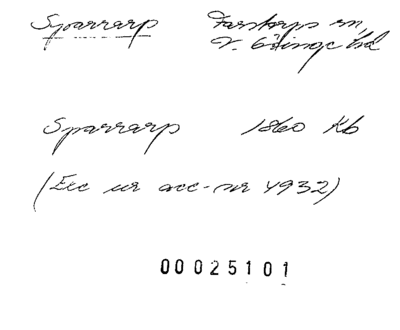 Sparrarp Farstorps sn,
V. Göinge hd
Sparrarp 1860 Kb
(Exc ur acc-nr 4932)
00025101